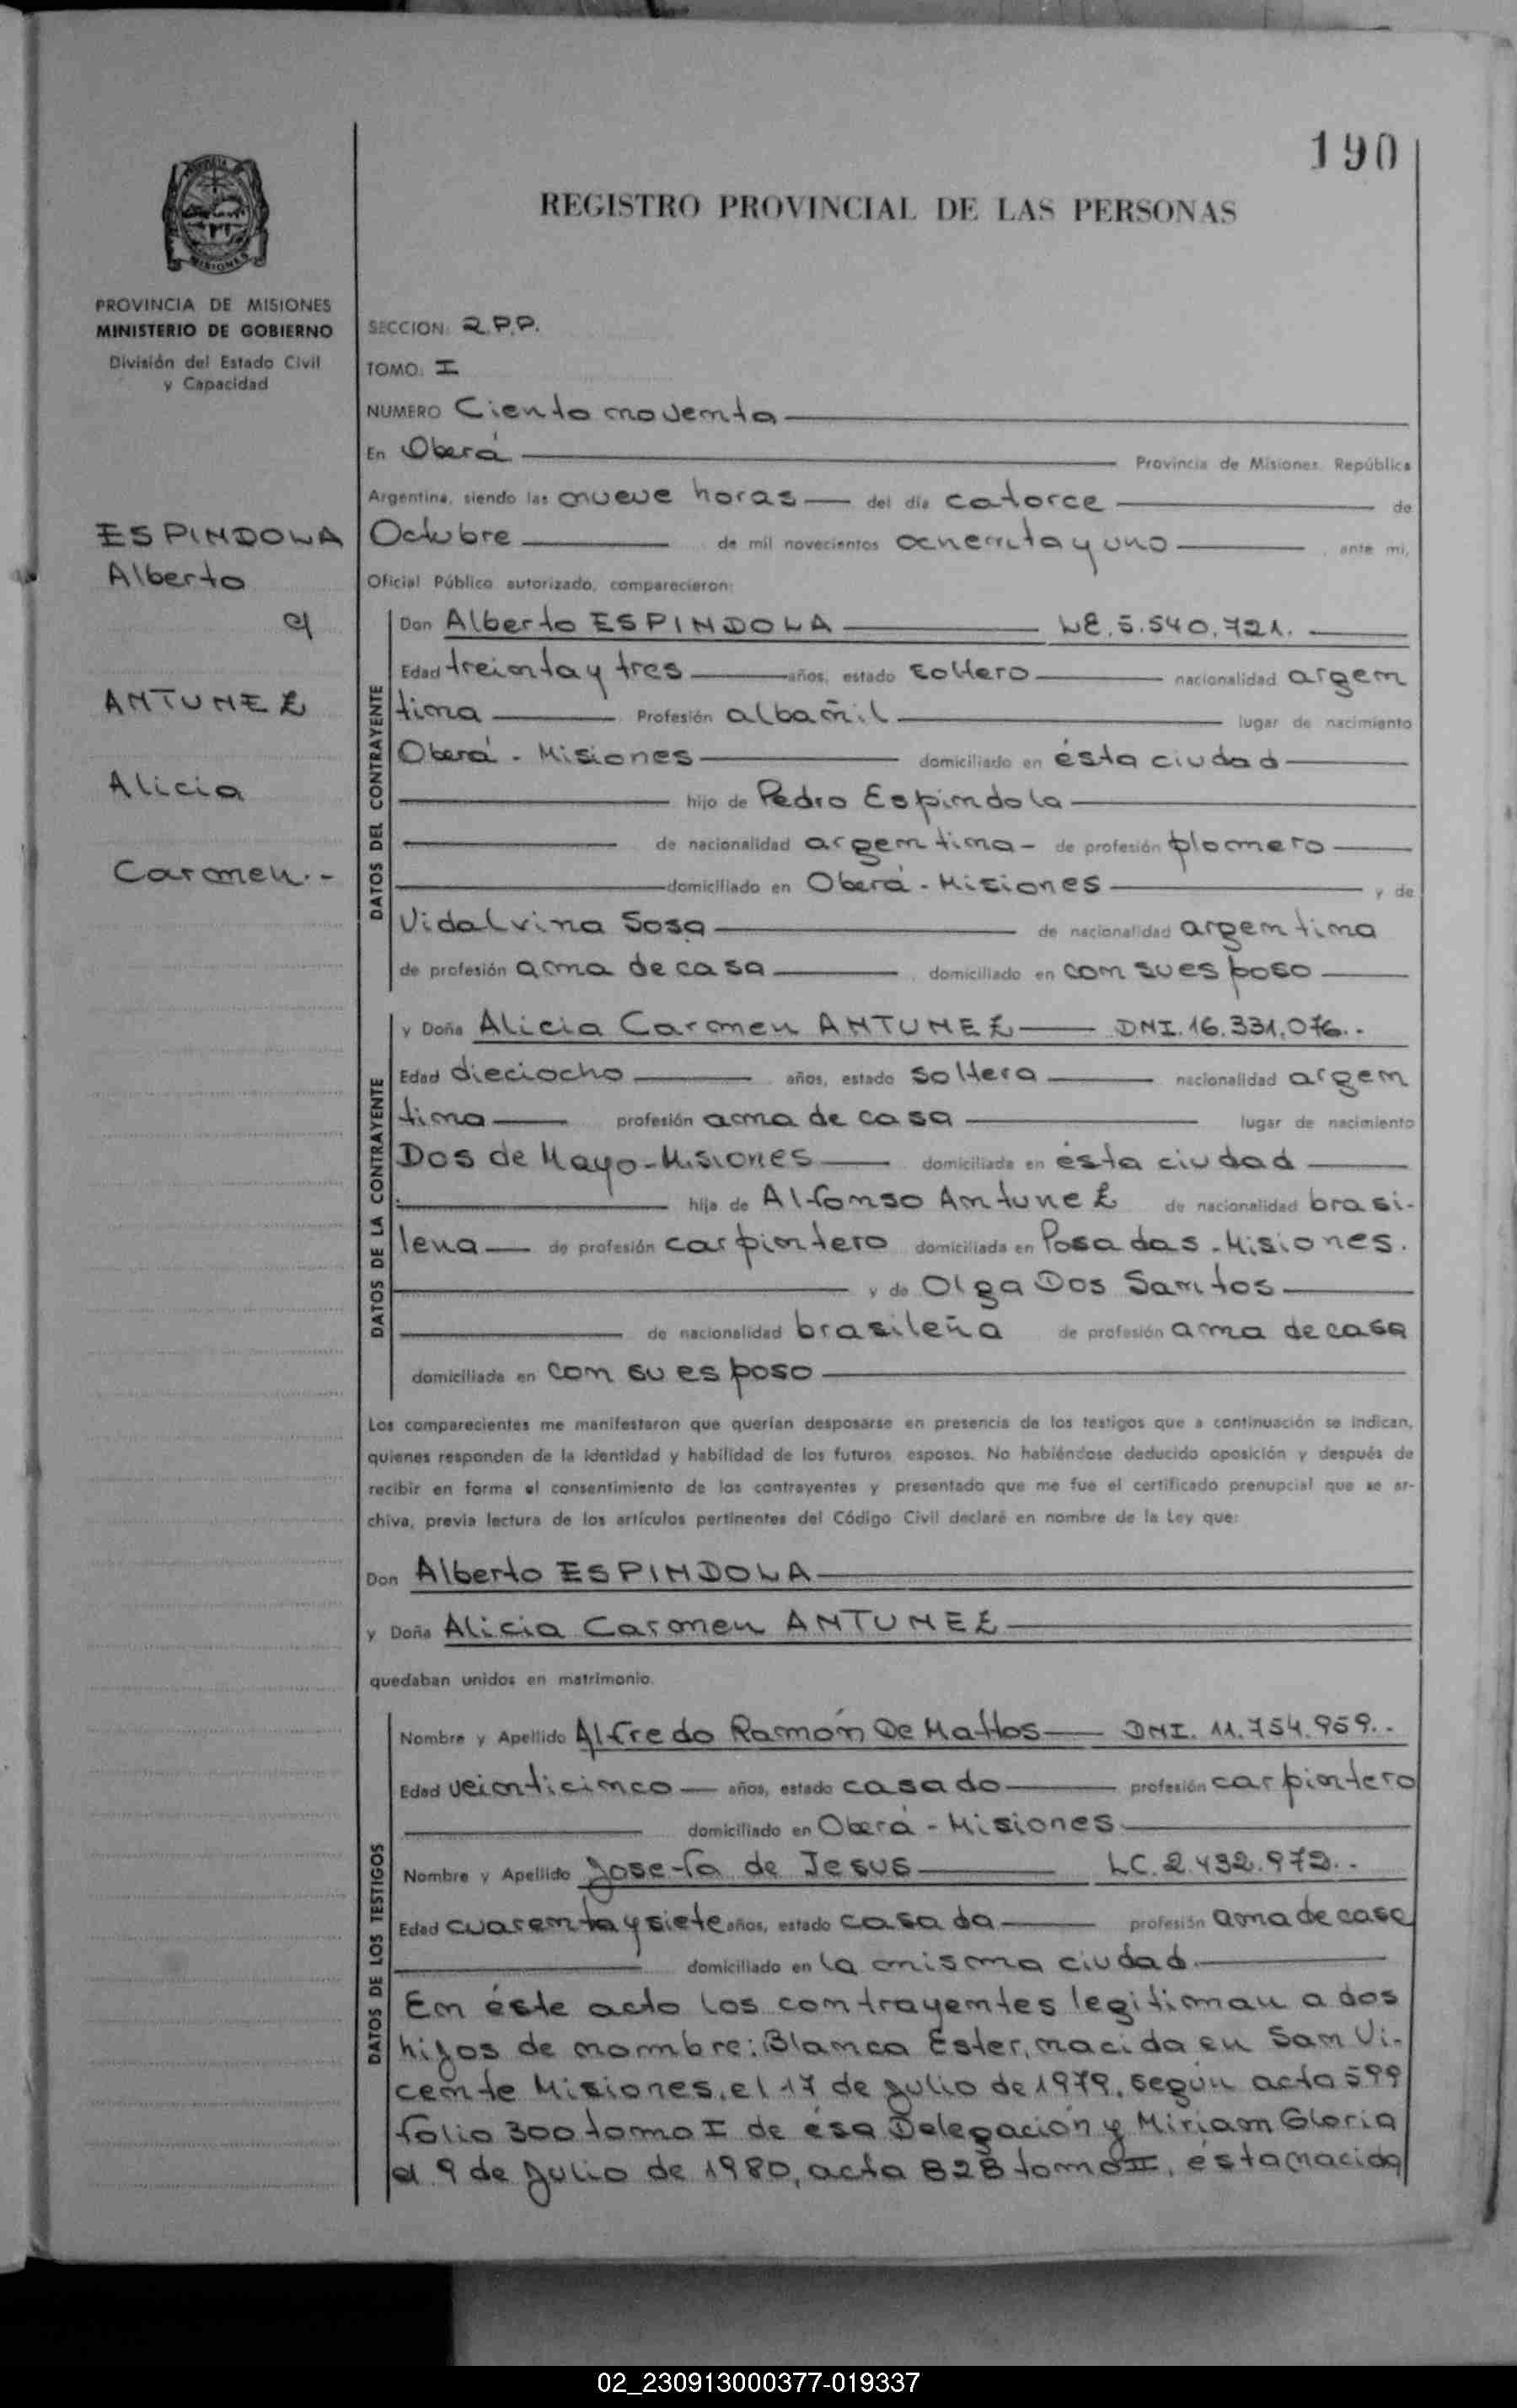 190
REGISTRO PROVINCIAL DE LAS PERSONAS
MISIONES
PROVINCIA DE MISIONES
MINISTERIO DE GOBIERNO
División del Estado Civil
y Capacidad
ESPINDOLA
Alberto
c/
ANTUNEZ
Alicia
Carmen.-
SECCION: R.P.P.
TOMO: I
NUMERO Ciento noventa
En Oberá Provincia de Misiones, República
Argentina, siendo las nueve horas del día catorce de
Octubre de mil novecientos ochenta y uno, ante mi,
Oficial Público autorizado, comparecieron:
DATOS DEL CONTRAYENTE
Don Alberto ESPINDOLA LE. 5.540.721.
Edad treinta y tres años, estado soltero nacionalidad argen
tina Profesión albañil lugar de nacimiento
Oberá - Misiones domiciliado en ésta ciudad
hijo de Pedro Espindola
de nacionalidad argentina- de profesión plomero
domiciliado en Oberá - Misiones y de
Vidalvina Sosa de nacionalidad argentina
de profesión ama de casa, domiciliado en con su esposo
DATOS DE LA CONTRAYENTE
y Doña Alicia Carmen ANTUNEZ DNI. 16.331.076.-
Edad dieciocho años, estado soltera nacionalidad argen
tina profesión ama de casa lugar de nacimiento
Dos de Mayo-Misiones domiciliada en ésta ciudad
hija de Alfonso Antunez de nacionalidad brasi-
leña de profesión carpintero domiciliada en Posadas - Misiones.
y de Olga Dos Santos
de nacionalidad brasileña de profesión ama de casa
domiciliada en con su esposo
Los comparecientes me manifestaron que querían desposarse en presencia de los testigos que a continuación se indican,
quienes responden de la identidad y habilidad de los futuros esposos. No habiéndose deducido oposición y después de
recibir en forma el consentimiento de los contrayentes y presentado que me fue el certificado prenupcial que se ar-
chiva, previa lectura de los artículos pertinentes del Código Civil declaré en nombre de la Ley que:
Don Alberto ESPINDOLA
y Doña Alicia Carmen ANTUNEZ
quedaban unidos en matrimonio.
DATOS DE LOS TESTIGOS
Nombre y Apellido Alfredo Ramón De Mattos DNI. 11.754.959.-
Edad veinticinco años, estado casado profesión carpintero
domiciliado en Oberá - Misiones
Nombre y Apellido Josefa de Jesus LC. 2.432.972.-
Edad cuarenta y siete años, estado casada profesión ama de casa
domiciliado en la misma ciudad.
En éste acto los contrayentes legitiman a dos
hijos de nombre: Blanca Ester, nacida en San Vi-
cente Misiones, el 17 de julio de 1979, según acta 599
folio 300 tomo I de ésa Delegación y Miriam Gloria
el 9 de Julio de 1980, acta 828 tomo II, ésta nacida
02_230913000377-019337